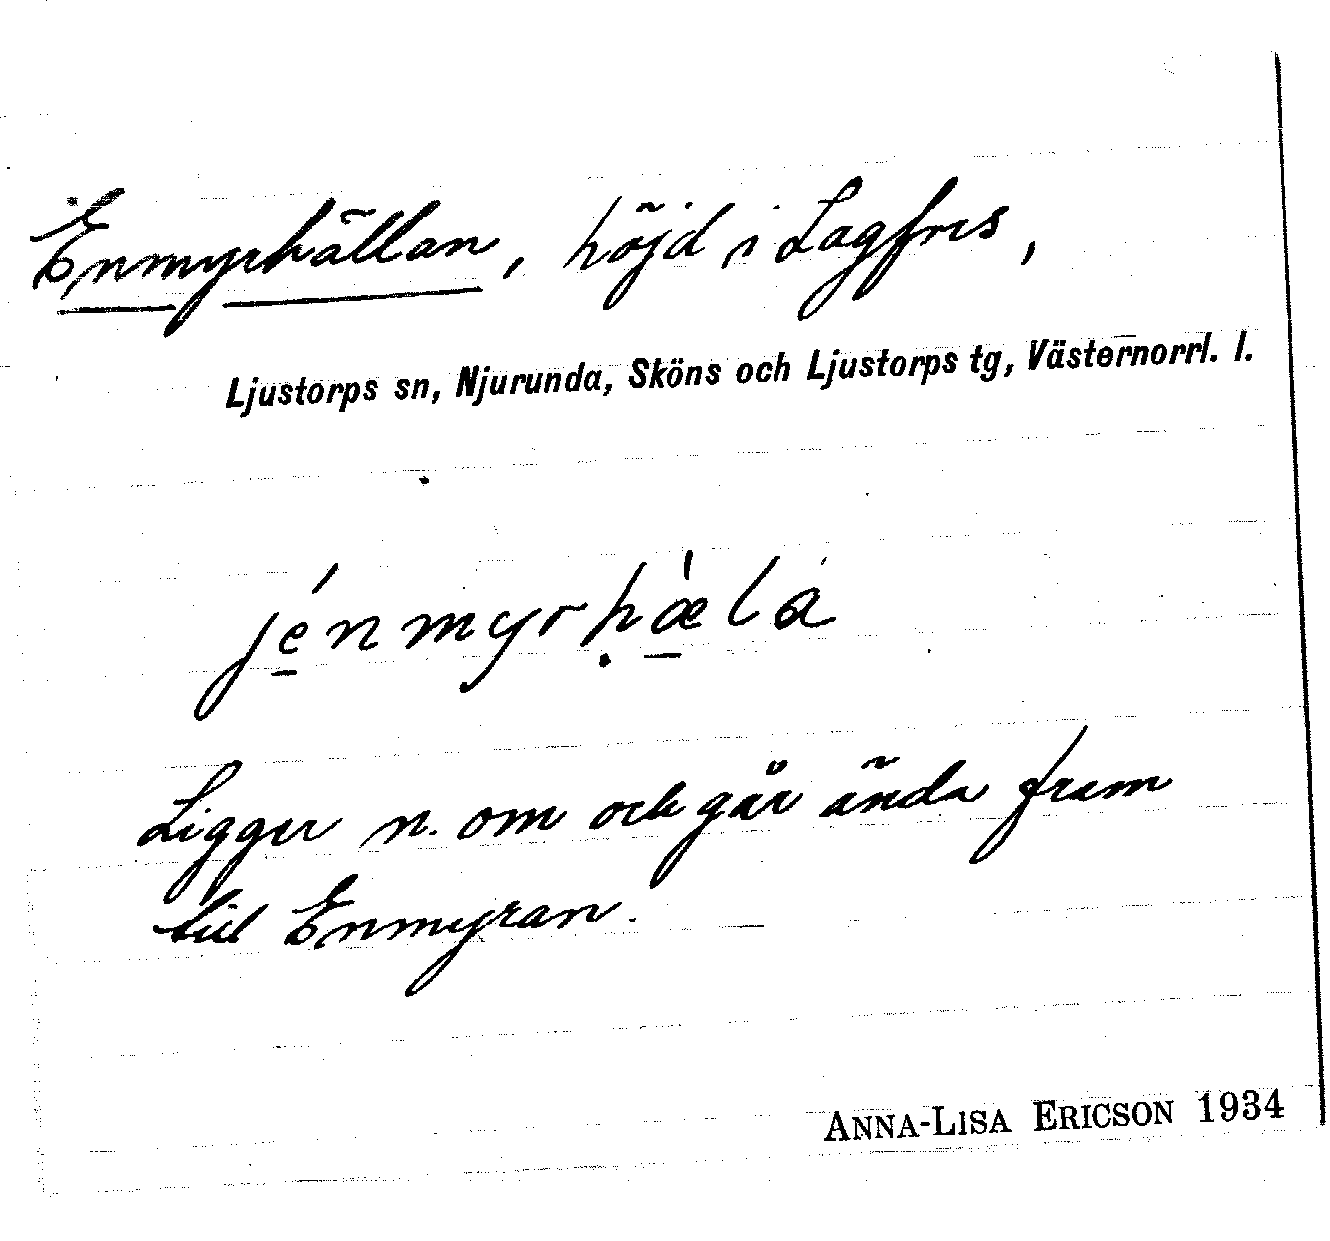 Enmyrhällan, höjd i Lagfors,
Ljustorps sn, Njurunda, Sköns och Ljustorps tg, Västernorrl. l.
jénmyrhæ̀la
Ligger n. om och går ända fram
till Enmyran.
ANNA-LISA ERICSON 1934